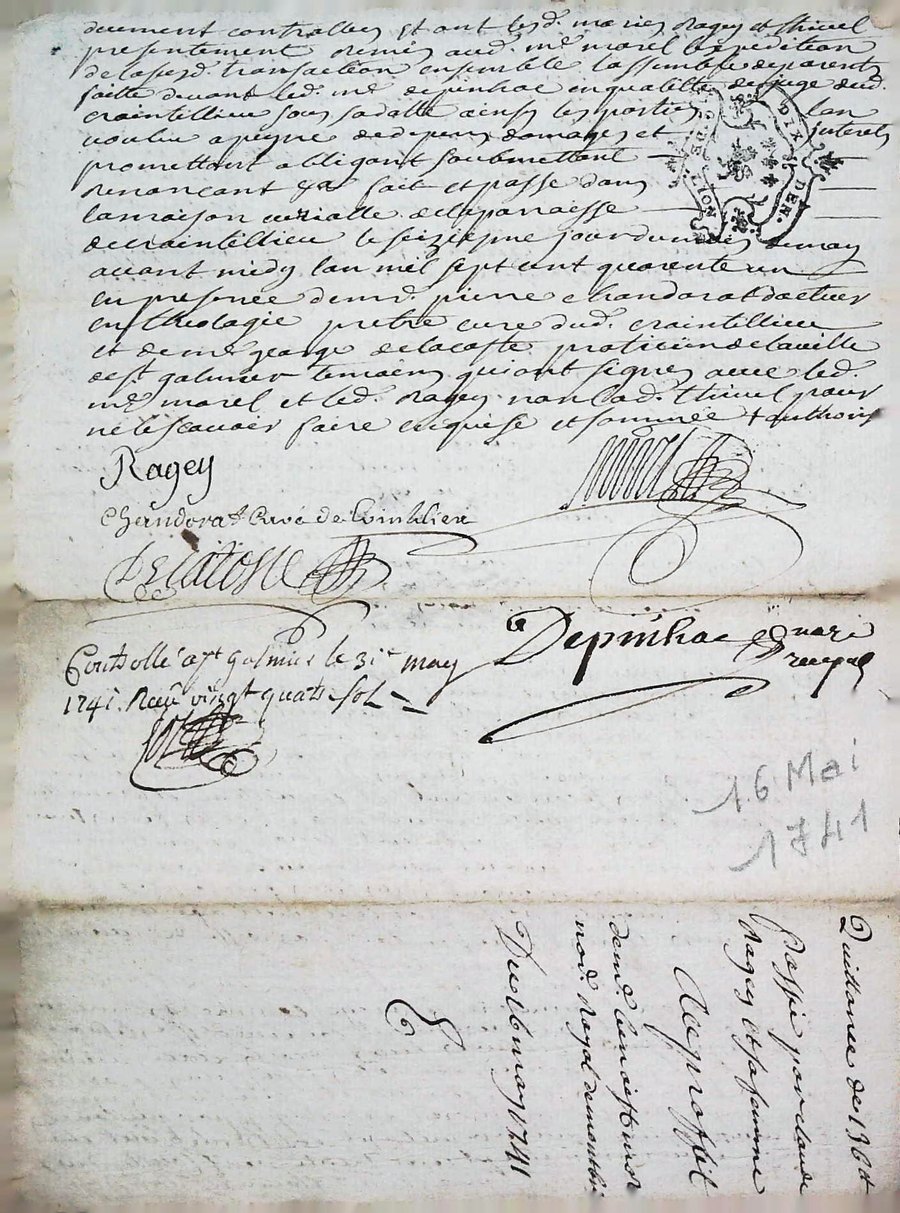 deuement controllez Et ont lesd. mariez Ragey et thivel
presentement remis aud. me. morel Expedition
de lasusd. transaction ensemble lassemblée de parents
faitte devant led. me. depinhac en qualitté de juge dud.
craintillieu sous sa datte ainsy les parties lon
voulu a peyne de depens domages et interets
promettant obligeant soubmettant
renonçant &a fait et passé dans
la maison curialle de la parroesse
de craintillieu le seizieme jour du mois de may
avant midy lan mil sept cent quarente un
en presence de mr. pierre chandorat docteur
en theologie prêtre curé dud. craintillieu
et de me george delacoste praticiien de la ville
de st galmier temoins qui ont signez avec led.
me. morel et led. Ragey non lad. thivel pour
ne le scavoir faire enquise et sommée
Ragey
Chandorat Curé de
Delacoste
Depinhac
Controllé a st galmier le 31e may
1741. Receu vingt quatre sol
16 Mai
1741
DIX DEN.
Quittance de 136
Passé par claude
Ragey et sa femme
Au proffit
de me. benoist morel
not. Royal de
Du 16 may 1741